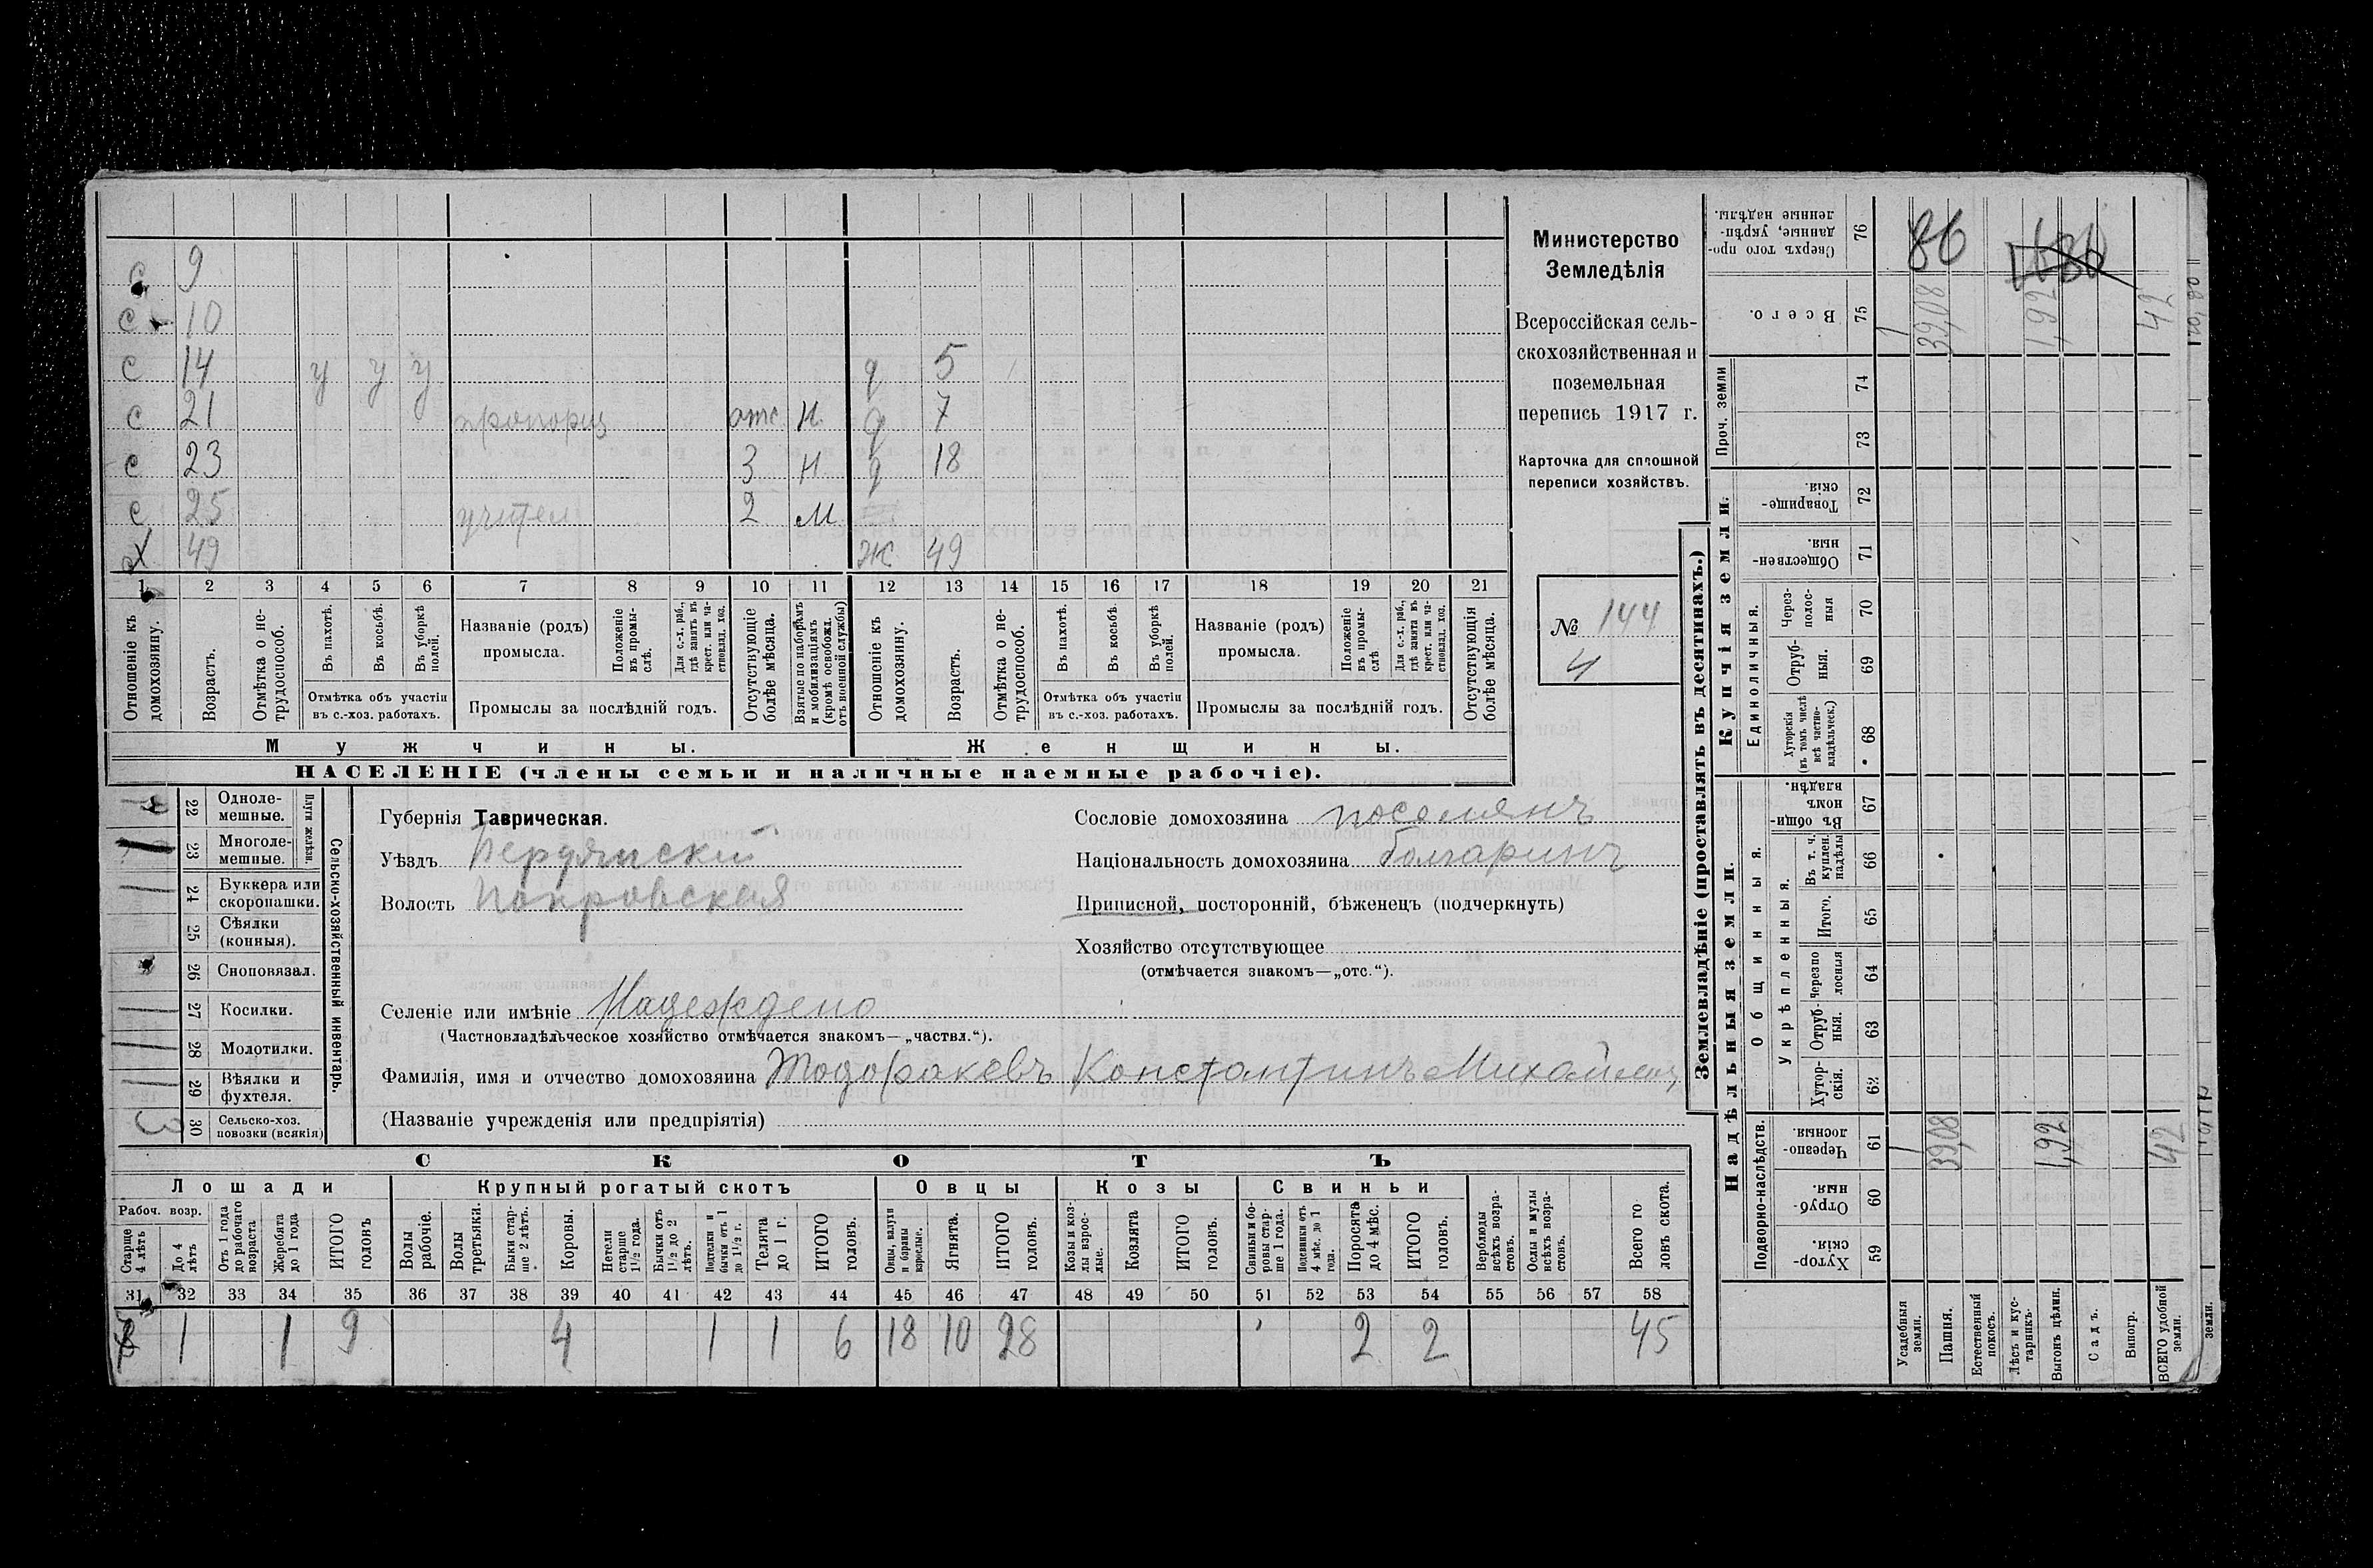 с 9
с 10
с 14 у у у д 5
с 21 прапорщ отс Н. д 7
с 23 3 Н д 18
с 25 учител 2 М
х 49 ж 49
1 2 3 4 5 6 7 8 9 10 11 12 13 14 15 16 17 18 19 20 21
Отношеніе къ домохозяину.
Возрастъ.
Отмѣтка о нетрудоспособ.
Въ пахотѣ.
Въ косьбѣ.
Въ уборкѣ полей.
Отмѣтка объ участіи
въ с.-хоз. работахъ.
Названіе (родъ)
промысла.
Положеніе въ промыслѣ.
Для с.-х. раб., гдѣ занятъ въ крест. или частновлад. хоз.
Промыслы за послѣдній годъ.
Отсутствующіе болѣе мѣсяца.
Взятые по наборамъ и мобилизаціямъ (кромѣ освобожд. отъ военной службы)
Отношеніе къ домохозяину.
Возрастъ.
Отмѣтка о нетрудоспособ.
Въ пахотѣ.
Въ косьбѣ.
Въ уборкѣ полей.
Отмѣтка объ участіи
въ с.-хоз. работахъ.
Названіе (родъ)
промысла.
Положеніе въ промыслѣ
Для с.-х. раб., гдѣ занята въ крест. или частновлад. хоз.
Промыслы за послѣдній годъ.
Отсутствующія болѣе мѣсяца.
Мужчины. Женщины.
НАСЕЛЕНІЕ (члены семьи и наличные наемные рабочіе).
Министерство
Земледѣлія
Всероссійская сель-
скохозяйственная и
поземельная
перепись 1917 г.
Карточка для сплошной
переписи хозяйствъ.
№ 144
4
22 Однолемешные.
23 Многолемешные.
Плуги желѣзн.
24 Буккера или скоропашки.
25 Сѣялки (конныя).
26 Сноповязал.
27 Косилки.
28 Молотилки.
29 Вѣялки и фухтеля.
3 30 Сельско-хоз. повозки (всякія)
Сельско-хозяйственный инвентарь.
Губернія Таврическая.
Уѣздъ Бердянскій
Волость Покровская
Селеніе или имѣніе Надеждено
(Частновладѣльческое хозяйство отмѣчается знакомъ—„частвл.“).
Фамилія, имя и отчество домохозяина Тодораковъ Константинъ Михайлов
(Названіе учрежденія или предпріятія)
Сословіе домохозяина поселянъ
Національность домохозяина болгаринъ
Приписной, посторонній, бѣженецъ (подчеркнуть)
Хозяйство отсутствующее
(отмѣчается знакомъ—„отс.“).
СКОТЪ
Лошади Крупный рогатый скотъ Овцы Козы Свиньи
Рабоч. возр.
Старше 4 лѣтъ
До 4 лѣтъ
Отъ 1 года до рабочаго возраста
Жеребята до 1 года
ИТОГО головъ
Волы рабочіе.
Волы третьяки.
Быки старше 2 лѣтъ.
Коровы.
Нетели старше 1½ года.
Бычки отъ 1½ до 2 лѣтъ.
Подтелки и бычки отъ 1 до 1½ г.
Телята до 1 г.
ИТОГО головъ.
Овцы, валухи и бараны взрослые.
Ягнята.
ИТОГО головъ.
Козы и козлы взрослые.
Козлята
ИТОГО головъ.
Свиньи и боровы старше 1 года.
Подсвинки отъ 4 мѣс. до 1 года.
Поросята до 4 мѣс.
ИТОГО головъ.
Верблюды всѣхъ возрастовъ.
Ослы и мулы всѣхъ возрастовъ.
Всего головъ скота.
31 32 33 34 35 36 37 38 39 40 41 42 43 44 45 46 47 48 49 50 51 52 53 54 55 56 57 58
1 1 9 4 1 1 6 18 10 28 2 2 45
Землевладѣніе (проставлять въ десятинахъ.)
Надѣльныя земли.
Купчія земли.
Подворно-наслѣдств.
Общинныя.
Укрѣпленныя.
Единоличныя.
Проч. земли
Хуторскія. 59
Отрубныя. 60
Черезполосныя. 61
Хуторскія. 62
Отрубныя. 63
Черезполосныя 64
Итого. 65
Въ т. ч. куплен. надѣлы 66
Въ общинномъ владѣн. 67
Хуторскія (въ томъ числѣ всѣ частновладѣльческ.) 68
Отрубныя. 69
Черезполосныя 70
Общественныя. 71
Товарищескія. 72
73
74
Всего. 75
Сверхъ того проданные, укрѣпленные надѣлы. 76
86
1 39,08 1,92 42
1 39,08 1,92 42
Усадебныя земли.
Пашня.
Естественный покосъ.
Лѣсъ и кустарникъ.
Выгонъ цѣлин.
Садъ.
Виногр.
ВСЕГО удобной земли.
земли.